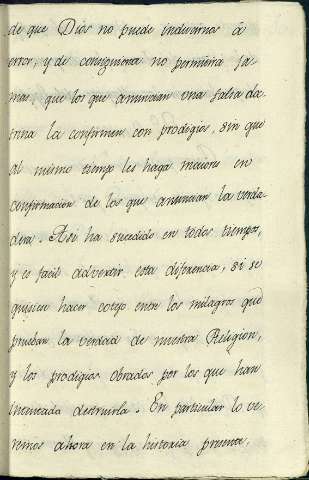 de que Dios no puede inducirnos à
error, y de consiguiente no permitirá ja
mas, que los que anuncian una falsa do
trina la confirmen con prodigios, sin que
al mismo tiempo les haga mayores en
confirmacion de los que anuncian la verda
dera. Asi ha sucedido en todos tiempos,
y es facil advertir esta diferencia, si se
quisiere hacer cotejo entre los milagros que
prueban la verdad de nuestra Religion,
y los prodigios obrados por los que han
intentado destruirla. En particular lo ve-
remos ahora en la historia presente.